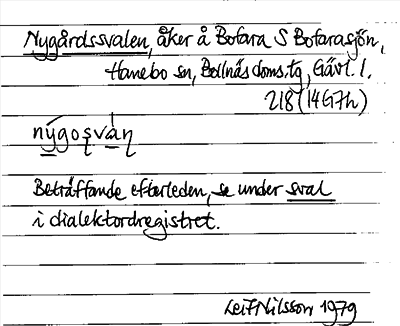 Nygårdssvalen, åker å Bofara S Bofarasjön,
Hanebo sn, Bollnäs doms.tg, Gävl. l.
218 (14G7h)
nýgoʂvàɳ
Beträffande efterleden, se under sval
i dialektordregistret.
Leif Nilsson 1979